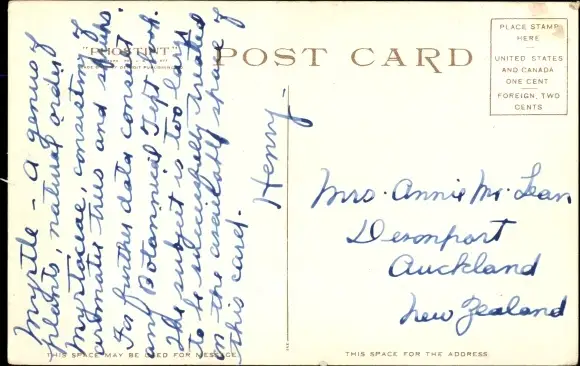 "PHOSTINT"
POST CARD
PLACE STAMP
HERE
UNITED STATES
AND CANADA
ONE CENT
FOREIGN, TWO
CENTS
Myrtle – A genus of
plants, natural order
Myrtaceae, consisting of
aromatic trees and shrubs.
For further data consult
any Botannical Text book.
The subject is too large
to be successfully treated
in the available space of
this card.
Henry.
Mrs. Annie Mc. Lean
Devonport
Auckland
New Zealand
THIS SPACE MAY BE USED FOR MESSAGE.
THIS SPACE FOR THE ADDRESS.